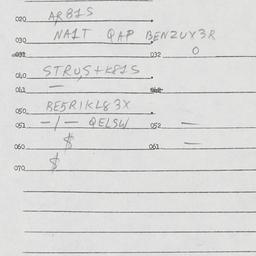 020 AR81S
030 NA1T QAP BENZUX3R
031 032 O
040 STRUS+K81S
041 —
050 BE5RIKL83X
051 —/— QELSW 052 —
060 $ 061 —
070 $